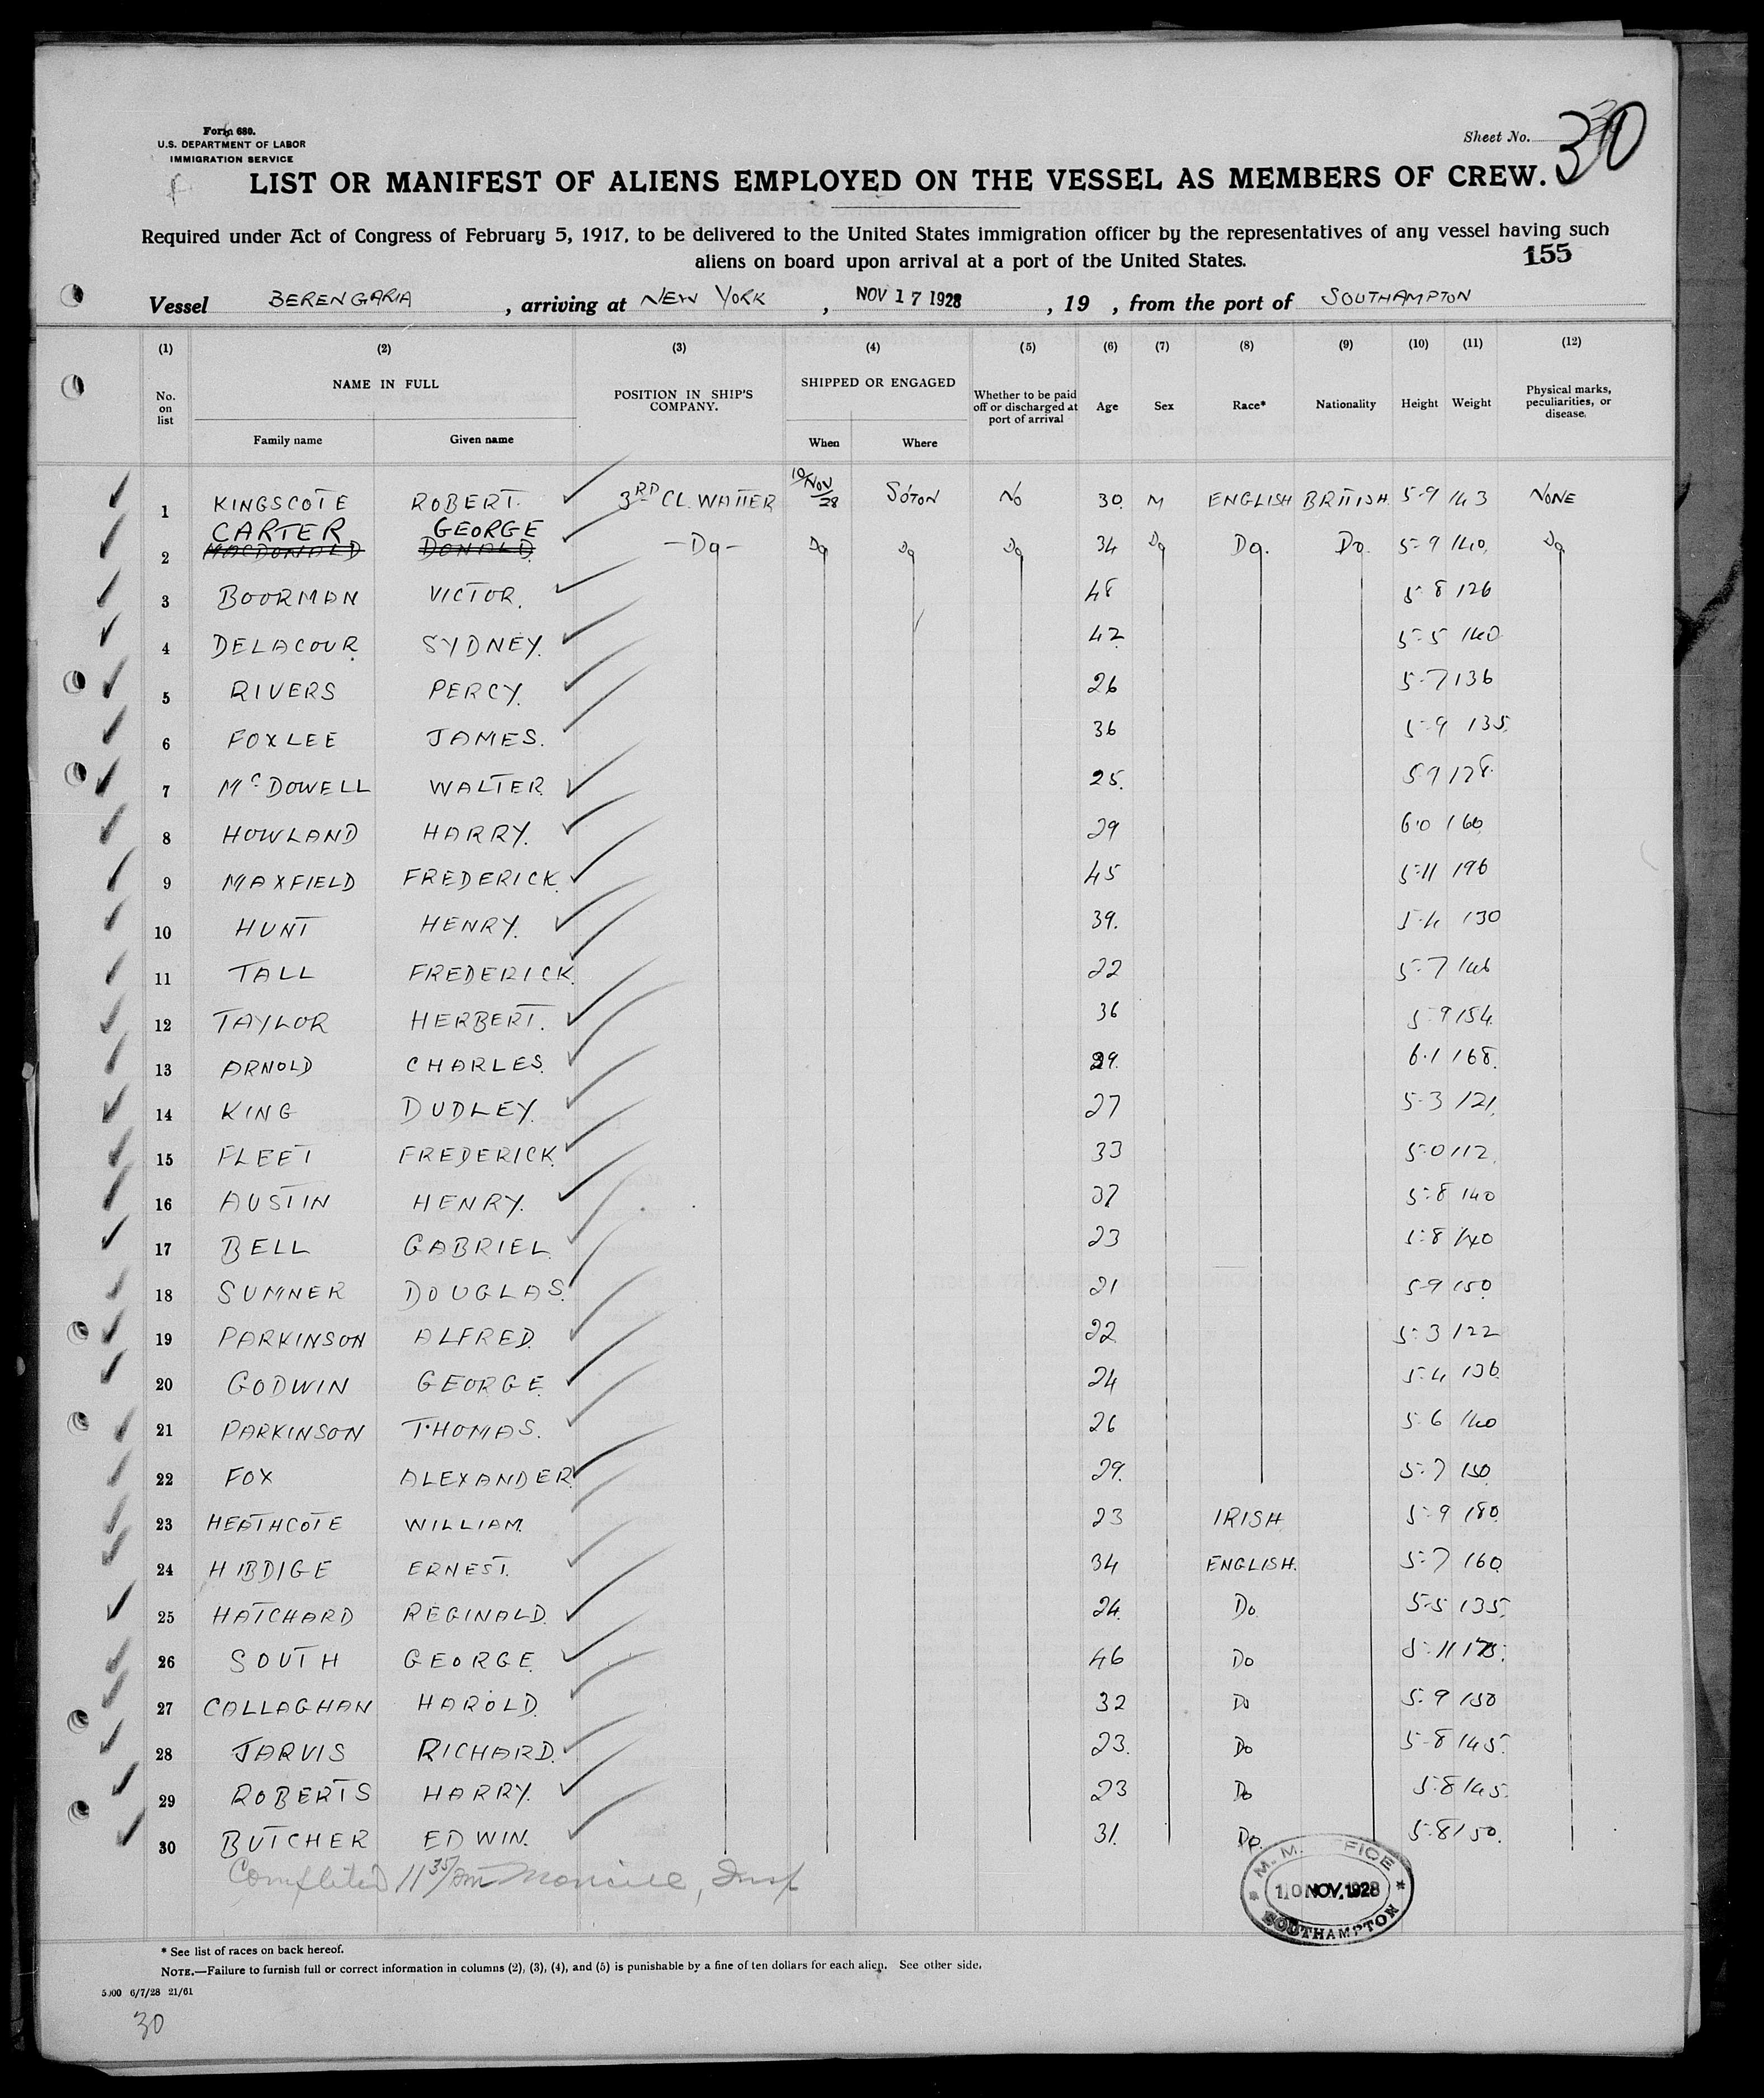 Form 680.
U.S. DEPARTMENT OF LABOR
IMMIGRATION SERVICE
Sheet No. 30
LIST OR MANIFEST OF ALIENS EMPLOYED ON THE VESSEL AS MEMBERS OF CREW.
Required under Act of Congress of February 5, 1917, to be delivered to the United States immigration officer by the representatives of any vessel having such
aliens on board upon arrival at a port of the United States.
155
Vessel BERENGARIA, arriving at NEW YORK, NOV 17 1928, 19 , from the port of SOUTHAMPTON
(1) (2) (3) (4) (5) (6) (7) (8) (9) (10) (11) (12)
No. on list NAME IN FULL Family name Given name POSITION IN SHIP'S COMPANY. SHIPPED OR ENGAGED When Where Whether to be paid off or discharged at port of arrival Age Sex Race* Nationality Height Weight Physical marks, peculiarities, or disease.
1 KINGSCOTE ROBERT. 3RD CL. WAITER 10/NOV/28 SOTON NO 30. M ENGLISH BRITISH 5-9 143 NONE
CARTER GEORGE
2 MACDONALD DONALD. -Do- Do Do Do 34 Do Do. Do. 5-9 140. Do
3 BOORMAN VICTOR. 48 5-8 126
4 DELACOUR SYDNEY. 42 5-5 140
5 RIVERS PERCY. 26 5-7 136
6 FOXLEE JAMES. 36 5-9 135.
7 McDOWELL WALTER 25. 5-9 128.
8 HOWLAND HARRY. 29 6.0 160
9 MAXFIELD FREDERICK. 45 5-11 196
10 HUNT HENRY. 39. 5-4 130
11 TALL FREDERICK. 22 5-7 146
12 TAYLOR HERBERT. 36 5-9 154.
13 ARNOLD CHARLES. 29. 6.1 168.
14 KING DUDLEY. 27 5-3 121.
15 FLEET FREDERICK. 33 5-0 112.
16 AUSTIN HENRY. 37 5-8 140
17 BELL GABRIEL. 23 5-8 140
18 SUMNER DOUGLAS. 21 5-9 150
19 PARKINSON ALFRED. 22 5-3 122
20 GODWIN GEORGE. 24 5-4 136.
21 PARKINSON THOMAS. 26 5-6 140
22 FOX ALEXANDER. 29. 5-7 150.
23 HEATHCOTE WILLIAM. 23 IRISH 5-9 180.
24 HIBDIGE ERNEST. 34 ENGLISH. 5-7 160.
25 HATCHARD REGINALD. 24. Do 5-5 135.
26 SOUTH GEORGE. 46 Do 5-11 175.
27 CALLAGHAN HAROLD. 32 Do 5-9 150
28 JARVIS RICHARD. 23. Do 5-8 145.
29 ROBERTS HARRY. 23 Do 5-8 145.
30 BUTCHER EDWIN. 31. Do. 5-8 150.
Completed 11 35/am Insp
M. M. OFFICE
10 NOV. 1928
SOUTHAMPTON
* See list of races on back hereof.
NOTE.—Failure to furnish full or correct information in columns (2), (3), (4), and (5) is punishable by a fine of ten dollars for each alien. See other side.
5000 6/7/28 21/61
30